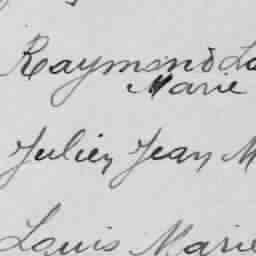 Raymond Lo
Marie
Julien Jean M
Louis Marie